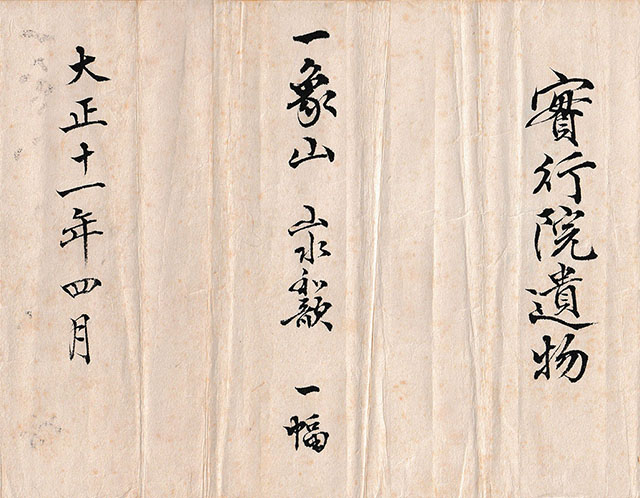 實行院遺物
一象山 山水和歌 一幅
大正十一年四月